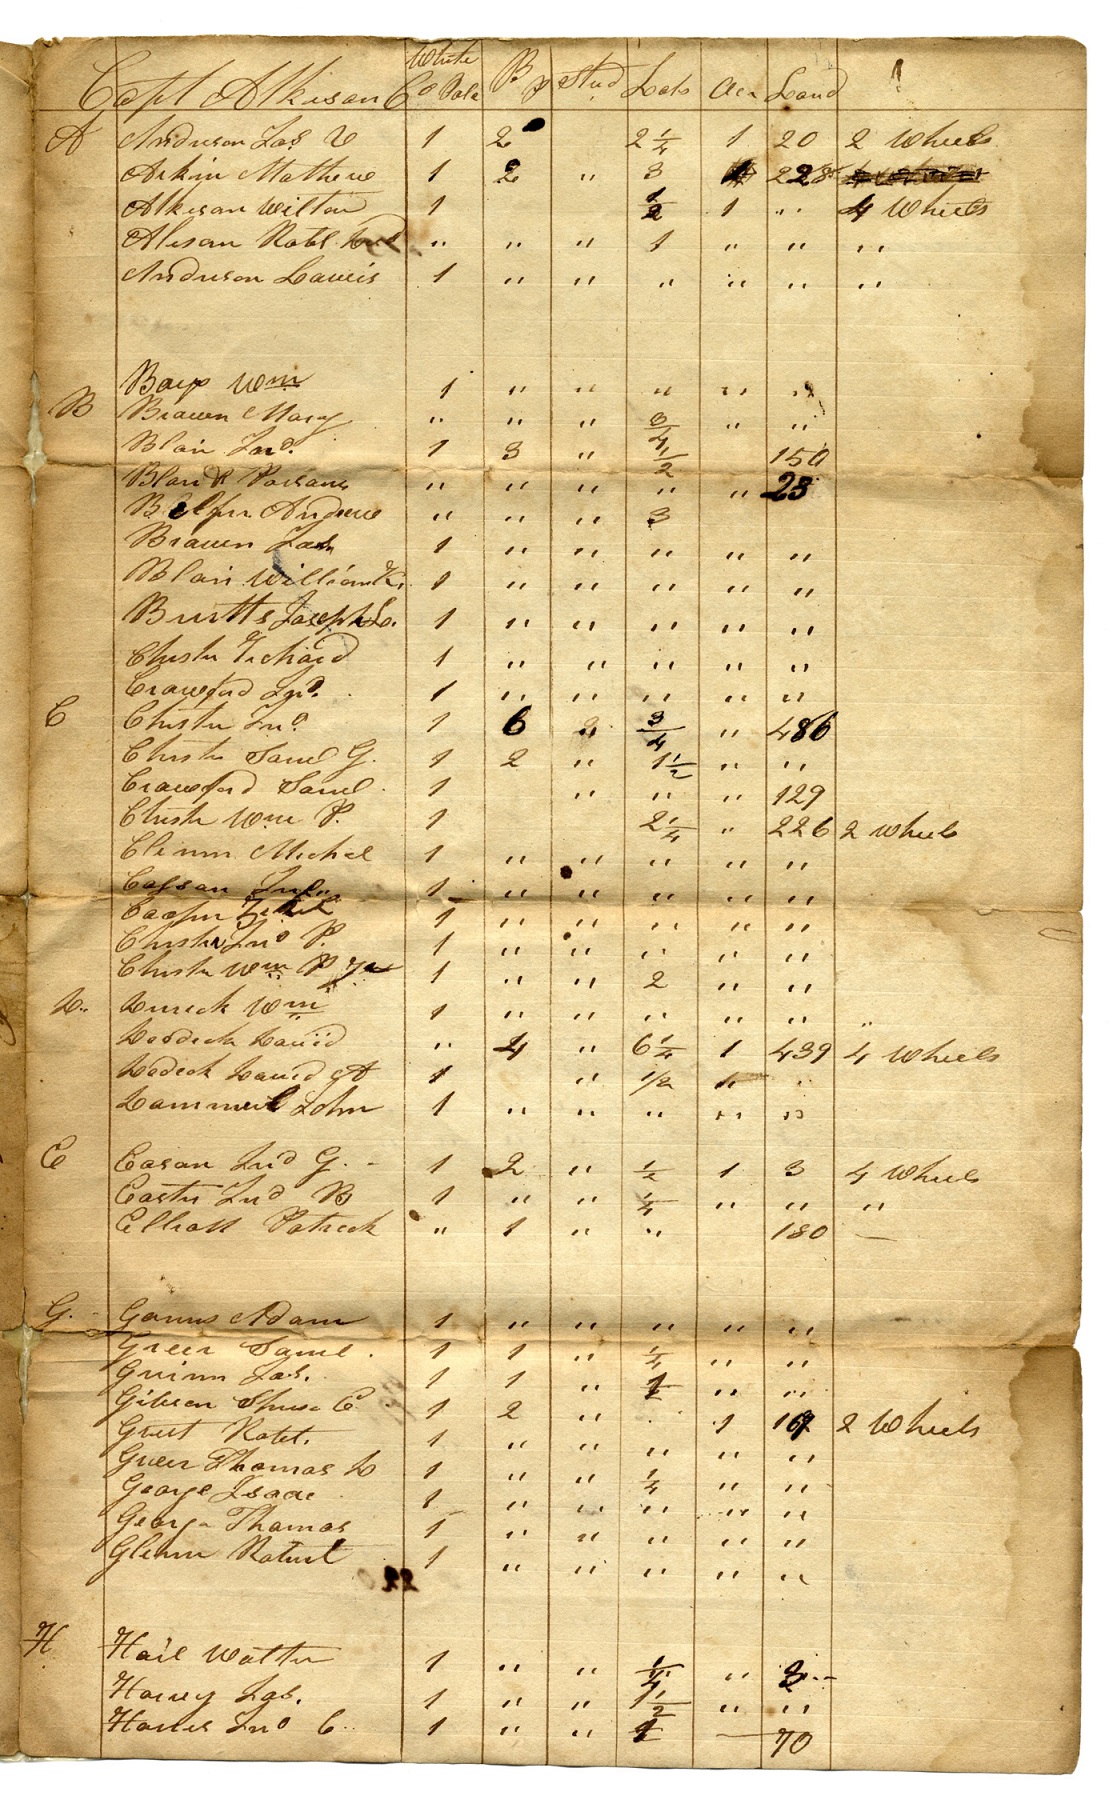 Capt Atkison White Co Pole B P Stud Lots Acr Land
A Anderson Jas V 1 2 2 1/4 1 20 2 Wheels
Arkin Mathew 1 2 " 3 1 228
Atkison Wilton 1 1/2 1 " 4 Wheels
Alison Robt " " " 1 " " "
Anderson Lewis 1 " " " " " "
Bays Wm 1 " " " " "
B Brown Mary " " " 3/4 " "
Blair Jno. 1 3 " 1/2 150
Blair & Parsons " " " " " 23
Andrew " " " 3
Brown Jas 1 " " " " "
Blair William K. 1 " " " " "
Burtts Joseph S. 1 " " " " "
Chester Richard 1 " " " " "
Crawford Jno. 1 " " " " "
C Chester Jno. 1 6 " 3/4 " 486
Chester Saml G. 1 2 " 1 1/2 " "
Crawford Saml 1 " " " 129
Chester Wm P. 1 2 1/4 " 226 2 Wheels
Michel 1 " " " " "
1 " " " " "
1 " " " " "
Chester Jno P. 1 " " " " "
Chester Wm P Jr 1 " " 2 " "
D. Wm 1 " " " " " "
Deadrick David " 4 " 6 1/4 1 439 4 Wheels
Dedrick David A 1 " 1/2 " "
John 1 " " " " "
E Eason Jno G. 1 2 " 1/2 1 3 4 Wheels
Easter Jno B 1 " " 1/4 " " "
Elliott Patrick " 1 " " 180
G. Adam 1 " " " " "
Greer Saml. 1 1 " 1/4 " "
Guinn Jas. 1 1 " 1/2 " "
Gibson Spuse E 1 2 " 1 2 Wheels
Robt. 1 " " " " "
Greer Thomas D 1 " " 1/4 " "
George Isaac 1 " " " " "
George Thomas 1 " " " " "
Glenn Robert 1 " " " " "
H Hail Walter 1 " " 1/4 " 3
Harvey Jas. 1 " " 1 1/2 " "
Jno C 1 " " 1 70